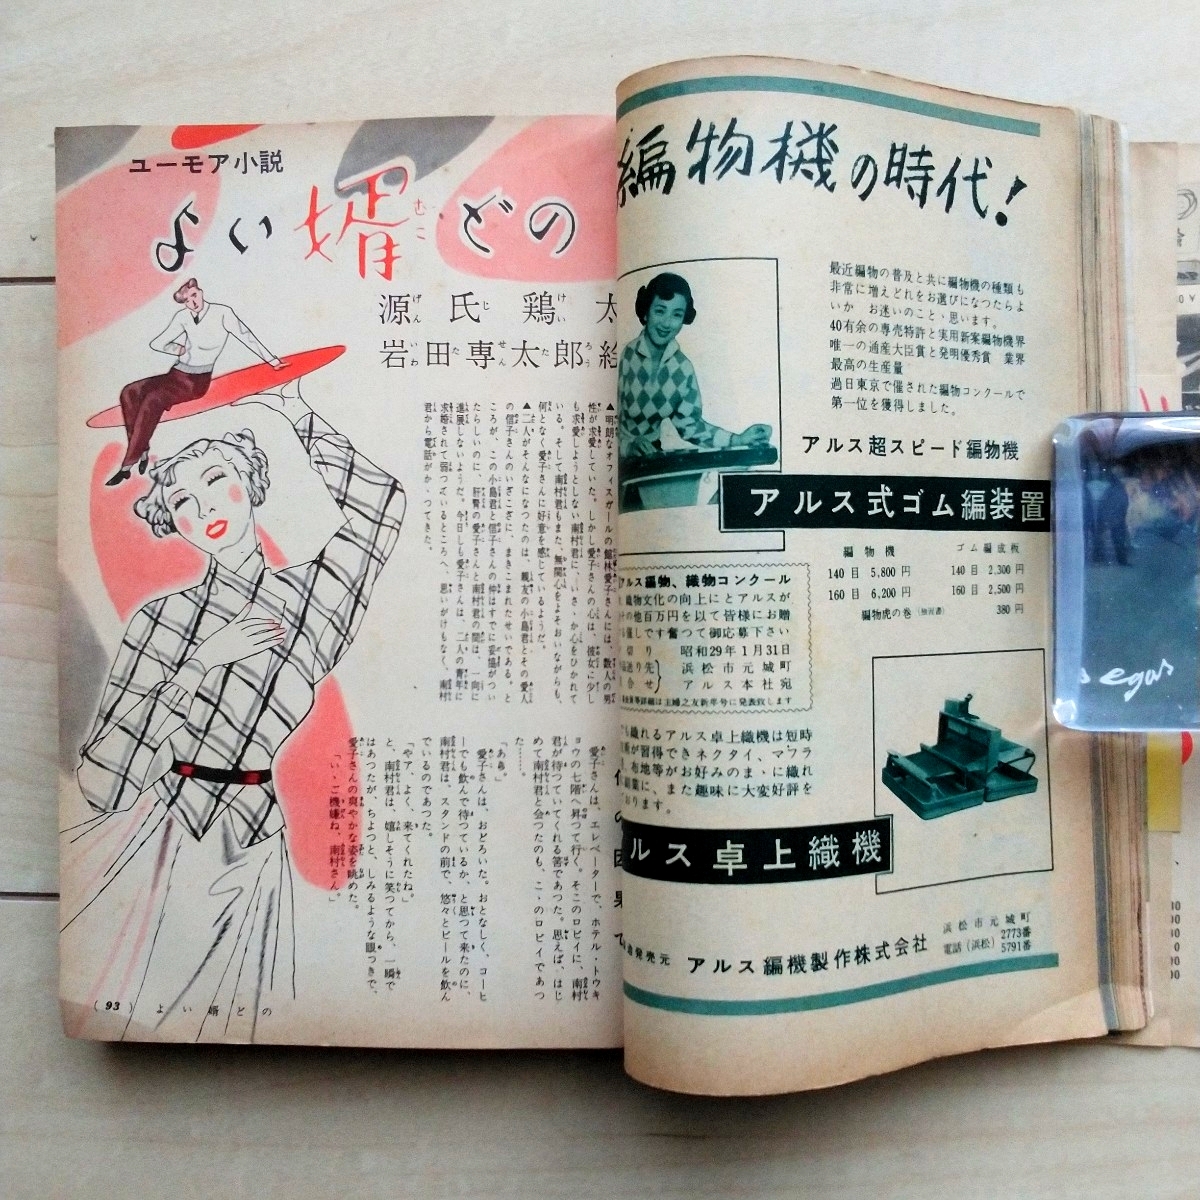 ユーモア小説
よい婿どの
源氏鶏太
岩田専太郎絵
▲明朗なオフィスガールの館林愛子さんには、数人の男
性が求愛していた。しかし愛子さんの心は、彼女に少し
も求愛しようとしない南村君に、いさゝか心をひかれて
いる。そして南村君もまた、無関心をよそおいながらも、
何となく愛子さんに好意を感じているようだ。
▲二人がそんなになつたのは、親友の小島君とその愛人
の信子さんのいざこざに、まきこまれたせいである。と
ころが、この小島君と信子さんの仲はすでに妥協がつい
たらしいのに、肝腎の愛子さんと南村君の間は、一向に
進展しないようだ。今日しも愛子さんは、二人の青年に
求婚されて弱つているところへ、思いがけもなく、南村
君から電話がかゝつてきた。
愛子さんは、エレベーターで、ホテル・トウキ
ョウの七階へ昇つて行く。そこのロビイに、南村
君が待つていてくれる筈であつた。思えば、はじ
めて南村君と会つたのも、こゝのロビイであつ
た……。
「あら。」
愛子さんは、おどろいた。おとなしく、コーヒ
ーでも飲んで待つているか、と思つて来たのに、
南村君は、スタンドの前で、悠々とビールを飲ん
でいるのであつた。
「やア、よく、来てくれたね。」
と、南村君は、嬉しそうに笑つてから、一瞬で
はあつたが、ちよつと、しみるような眼つきで、
愛子さんの爽やかな姿を眺めた。
「いゝご機嫌ね、南村さん。」
(93) よい婿どの
編物機の時代!
最近編物の普及と共に編物機の種類も
非常に増えどれをお選びになつたらよ
いか お迷いのこと・思います。
40有余の専売特許と実用新案編物機界
唯一の通産大臣賞と発明優秀賞 業界
最高の生産量
過日東京で催された編物コンクールで
第一位を獲得しました。
アルス超スピード編物機
アルス式ゴム編装置
編物機 ゴム編成板
140目 5,800円 140目 2,300円
160目 6,200円 160目 2,500円
編物虎の巻 380円
アルス編物、織物コンクール
織物文化の向上にとアルスが
の他百万円を以て皆様にお贈
催しです奮つて御応募下さい
切り 昭和29年1月31日
送り先 浜松市元城町
合せ アルス本社宛
詳細は主婦之友新年号に発表致します
織れるアルス卓上織機は短時
習得できネクタイ、マフラ
布地等がお好みのま・に織れ
副業に、また趣味に大変好評を
おります。
ルス卓上織機
発売元 アルス編機製作株式会社
浜松市元城町
電話(浜松) 2773番
5791番
egas